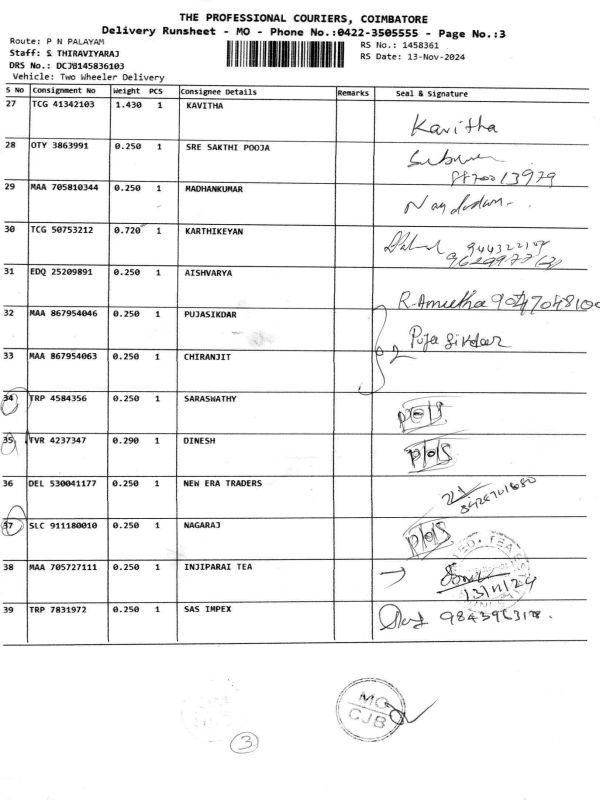 THE PROFESSIONAL COURIERS, COIMBATORE
Delivery Runsheet - MO - Phone No.:0422-3505555 - Page No.:3
Route: P N PALAYAM
RS No.: 1458361
Staff: S THIRAVIYARAJ
RS Date: 13-Nov-2024
DRS No.: DCJB145836103
Vehicle: Two Wheeler Delivery
S No Consignment No Weight PCS Consignee Details Remarks Seal & Signature
27 TCG 41342103 1.430 1 KAVITHA Kavitha
28 OTY 3863991 0.250 1 SRE SAKTHI POOJA
29 MAA 705810344 0.250 1 MADHANKUMAR
30 TCG 50753212 0.720 1 KARTHIKEYAN
31 EDQ 25209891 0.250 1 AISHVARYA R.Amutha 9047048100
32 MAA 867954046 0.250 1 PUJASIKDAR Puja Sikdar
33 MAA 867954063 0.250 1 CHIRANJIT 2
34 TRP 4584356 0.250 1 SARASWATHY
35 TVR 4237347 0.290 1 DINESH
36 DEL 530041177 0.250 1 NEW ERA TRADERS
37 SLC 911180010 0.250 1 NAGARAJ
38 MAA 705727111 0.250 1 INJIPARAI TEA 13/11/24
39 TRP 7831972 0.250 1 SAS IMPEX
MO
CJB
3